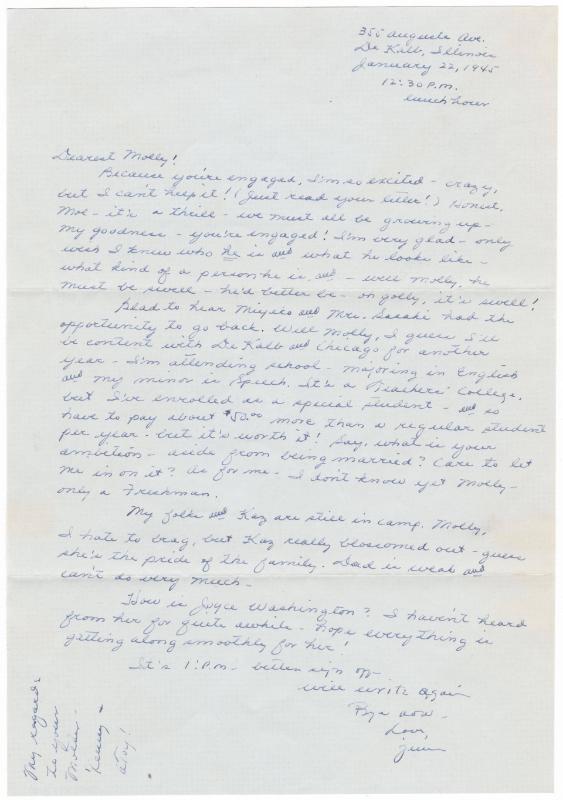 355 Augusta Ave.
De Kalb, Illinois
January 22, 1945
12:30 P.M.
lunch hour
Dearest Molly!
Because you're engaged, I'm so excited - crazy,
but I can't help it! (Just read your letter!) Honest,
Mol - it's a thrill - we must all be growing up -
My goodness - you're engaged! I'm very glad - only
wish I knew who he is and what he looks like -
what kind of a person he is and - well Molly, he
must be swell - he'd better be - oh golly, it's swell!
Glad to hear Miyako and Mrs. Sasaki had the
opportunity to go back. Well Molly, I guess I'll
be content with De Kalb and Chicago for another
year - I'm attending school - majoring in English
and my minor is Speech. It's a Teachers' College,
but I've enrolled as a special student - and so
have to pay about $50.00 more than a regular student
per year - but it's worth it! Say, what is your
ambition - aside from being married? Care to let
me in on it? As for me - I don't know yet Molly -
only a Freshman.
My folks and Kaz are still in camp. Molly,
I hate to brag, but Kaz really blossomed out - guess
she's the pride of the family. Dad is weak and
can't do very much -
How is Joyce Washington? I haven't heard
from her for quite awhile - hope everything is
getting along smoothly for her!
It's 1: P.M. - better sign off -
will write again
Bye now -
Love,
My regards
to your
Mother -